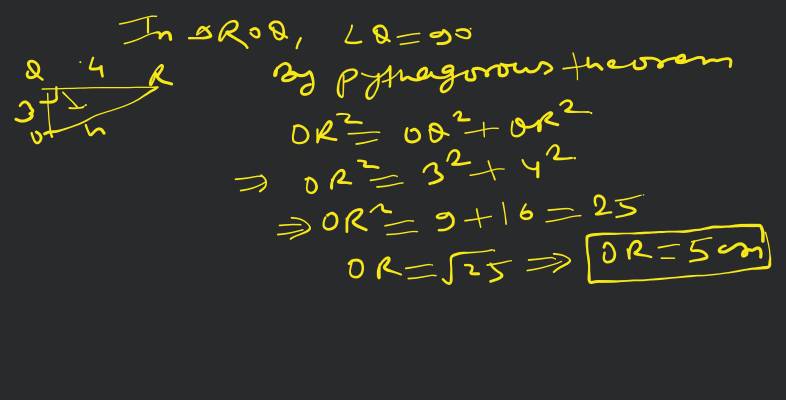 In △ROQ, ∠Q=90
Q 4 R
3
O h
By pythagorous theorem
OR²=OQ²+QR²
⇒ OR²=3²+4²
⇒ OR²=9+16=25
OR=√25 ⇒ OR=5cm